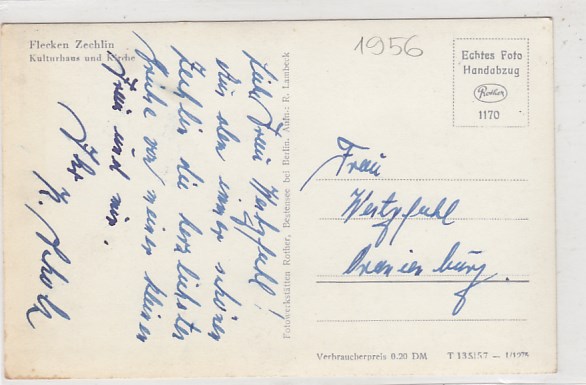 Flecken Zechlin
Kulturhaus und Kirche
1956
Echtes Foto
Handabzug
Rother
1170
Liebe Frau Westphal!
Aus dem immer schönen
Zechlin die herzlichsten
Grüße von meiner kleinen
Frau und mir.
Ihr
K. Scholz
Fotowerkstätten Rother, Bestensee bei Berlin. Aufn.: R. Lambeck
Frau
Westphal
Oranienburg.
Verbraucherpreis 0.20 DM T 13.5|5.7 — 1/1975